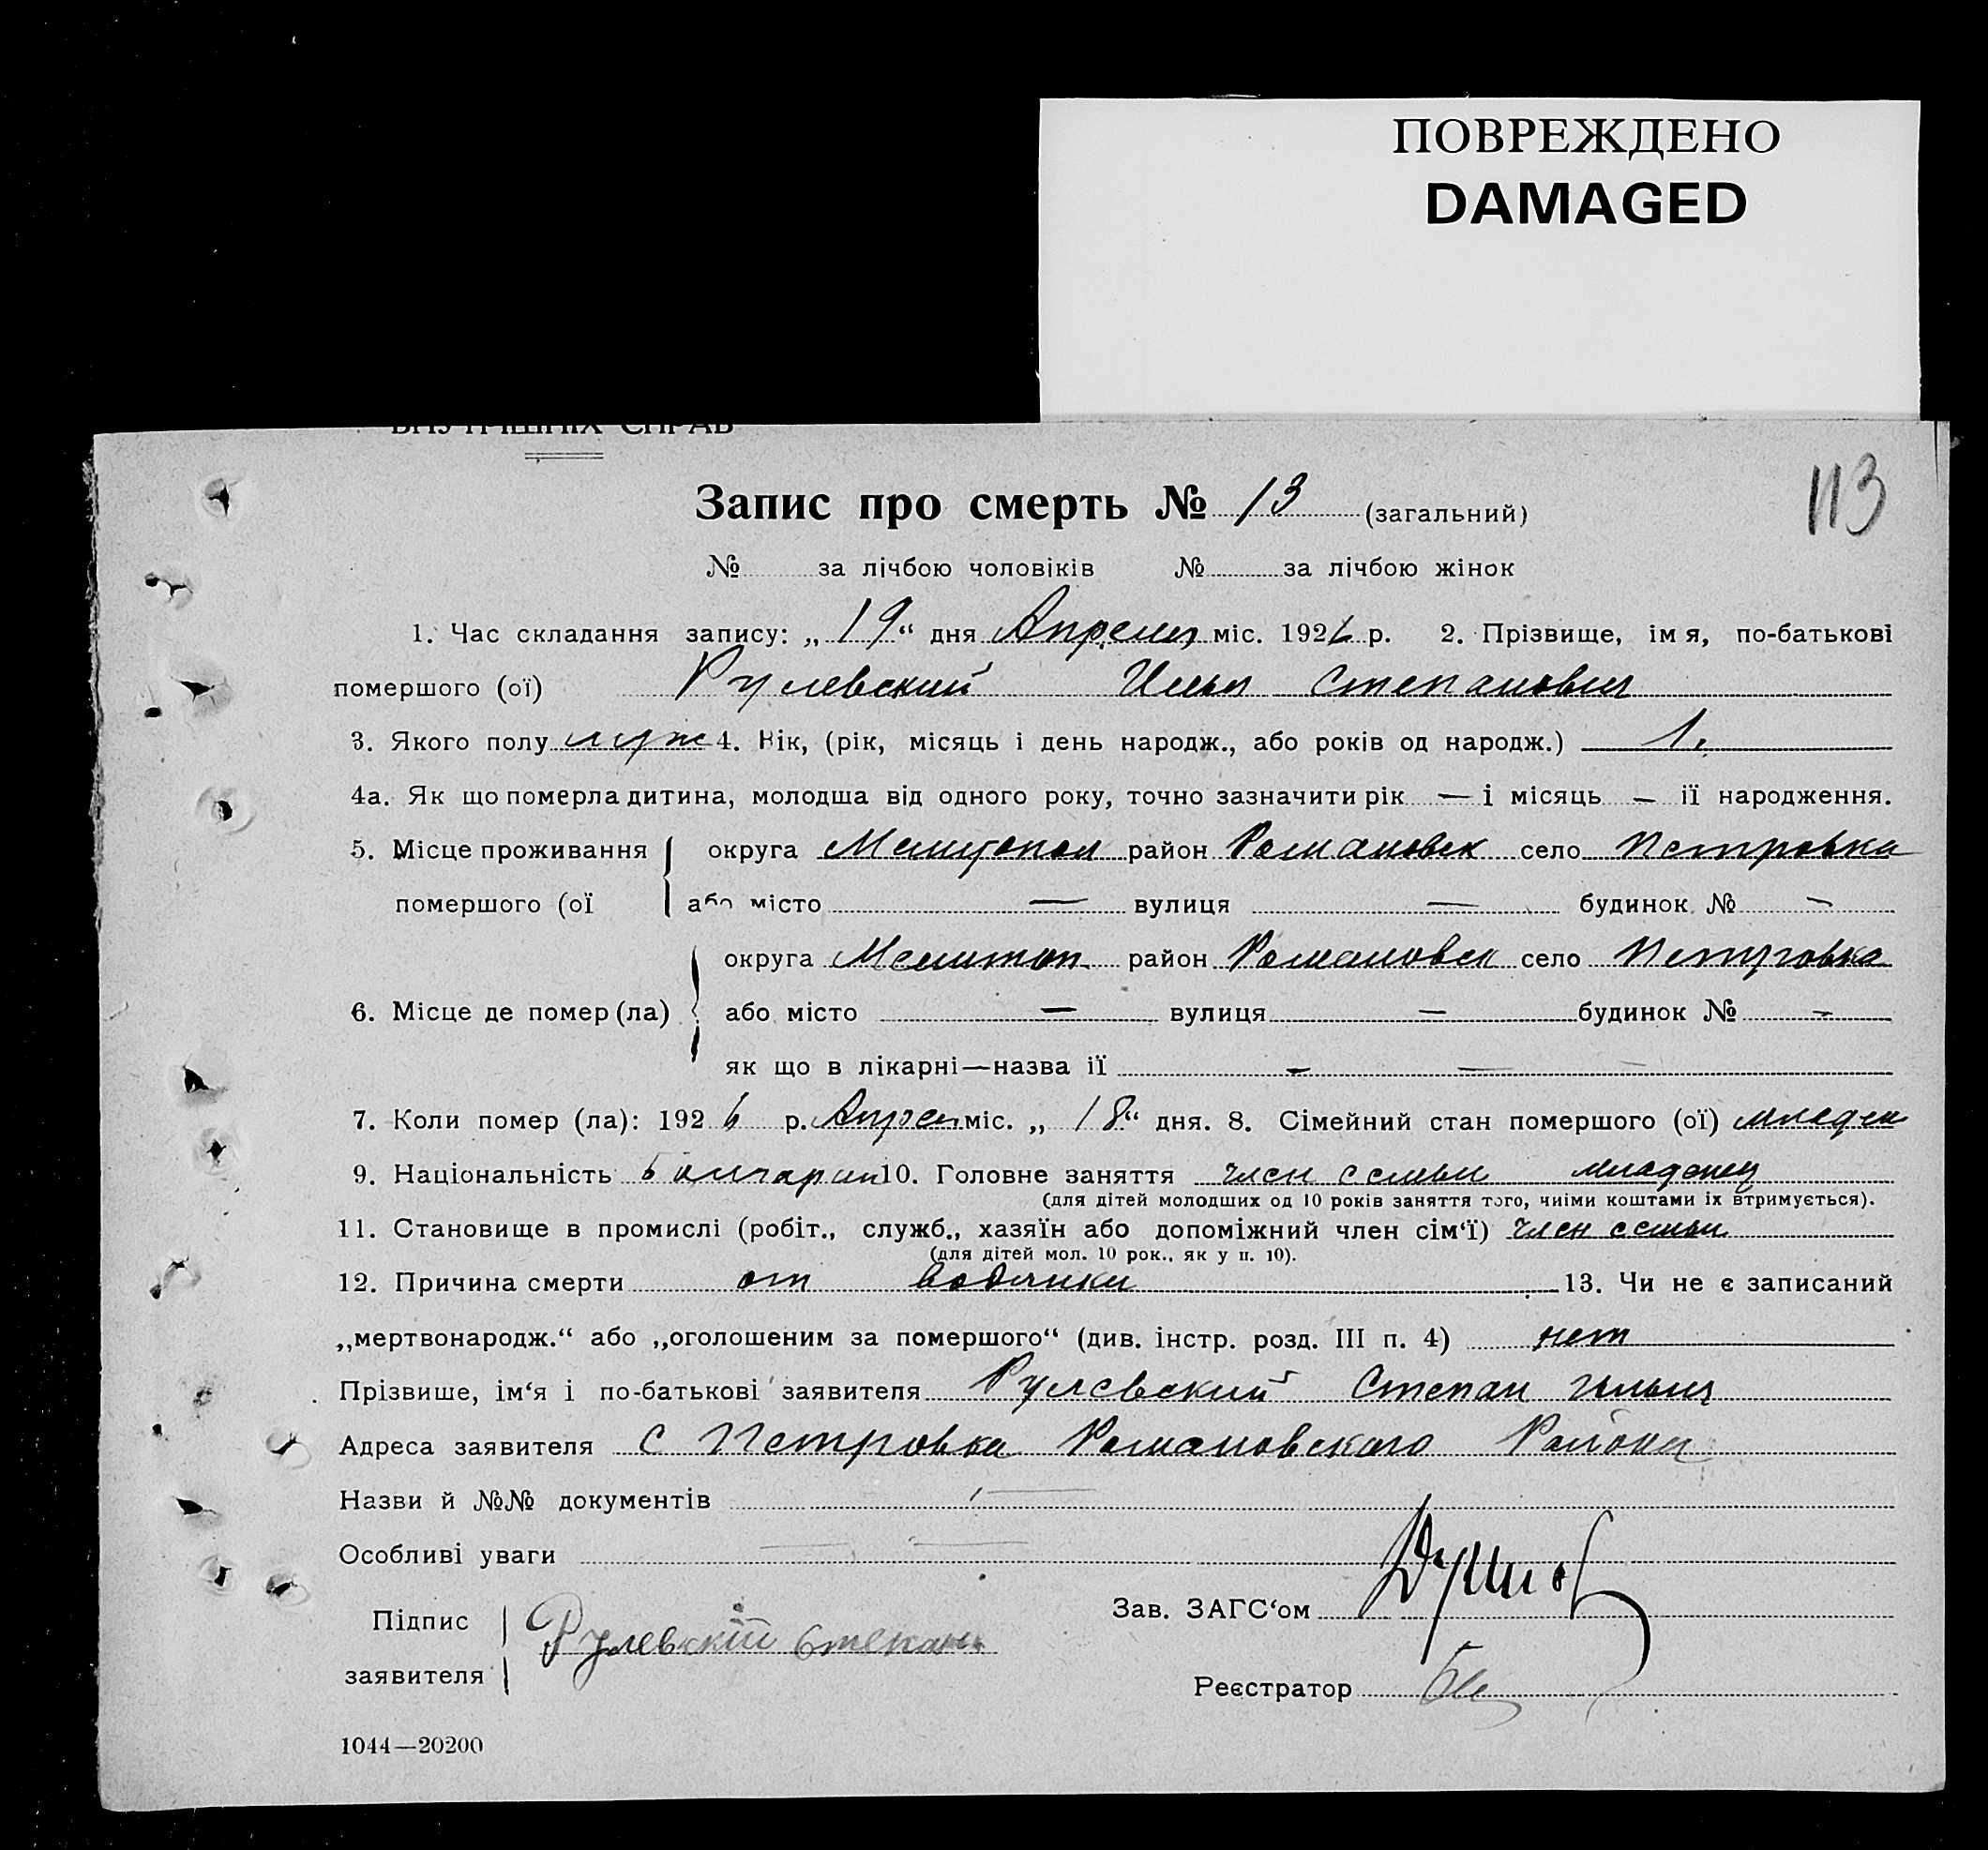 ПОВРЕЖДЕНО
DAMAGED
ВНУТРІШНІХ СПРАВ
113
Запис про смерть № 13 (загальний)
№ за лічбою чоловіків № за лічбою жінок
1. Час складання запису: „19“ дня Апреля міс. 1926 р. 2. Прізвище, імя, по-батькові
помершого (ої) Рулевский Илья Степанович
3. Якого полу муж 4. Вік, (рік, місяць і день народж., або років од народж.) 1.
4а. Як що померла дитина, молодша від одного року, точно зазначити рік — і місяць — ії народження.
5. Місце проживання округа Мелитопол район Романовск село Петровка
помершого (ої або місто — вулиця — будинок № —
округа Мелитоп. район Романовск село Петровка
6. Місце де помер (ла) або місто — вулиця — будинок № —
як що в лікарні—назва ії — —
7. Коли помер (ла): 1926 р. Апрел міс. „18“ дня. 8. Сімейний стан помершого (ої) младен
9. Національність болгарин 10. Головне заняття член семьи младенец
(для дітей молодших од 10 років заняття того, чиіми коштами іх втримується).
11. Становище в промислі (робіт., служб., хазяїн або допоміжний член сім‘ї) член семьи
(для дітей мол. 10 рок., як у п. 10).
12. Причина смерти от водянки 13. Чи не є записаний
„мертвонародж.“ або „оголошеним за помершого“ (див. інстр. розд. III п. 4) нет
Прізвише, ім‘я і по-батькові заявителя Рулевский Степан Ильич
Адреса заявителя с Петровка Романовского Района
Назви й №№ документів —
Особливі уваги — —
Зав. ЗАГС‘ом
Підпис
заявителя Рулевскій Степанъ
Реєстратор
1044—20200